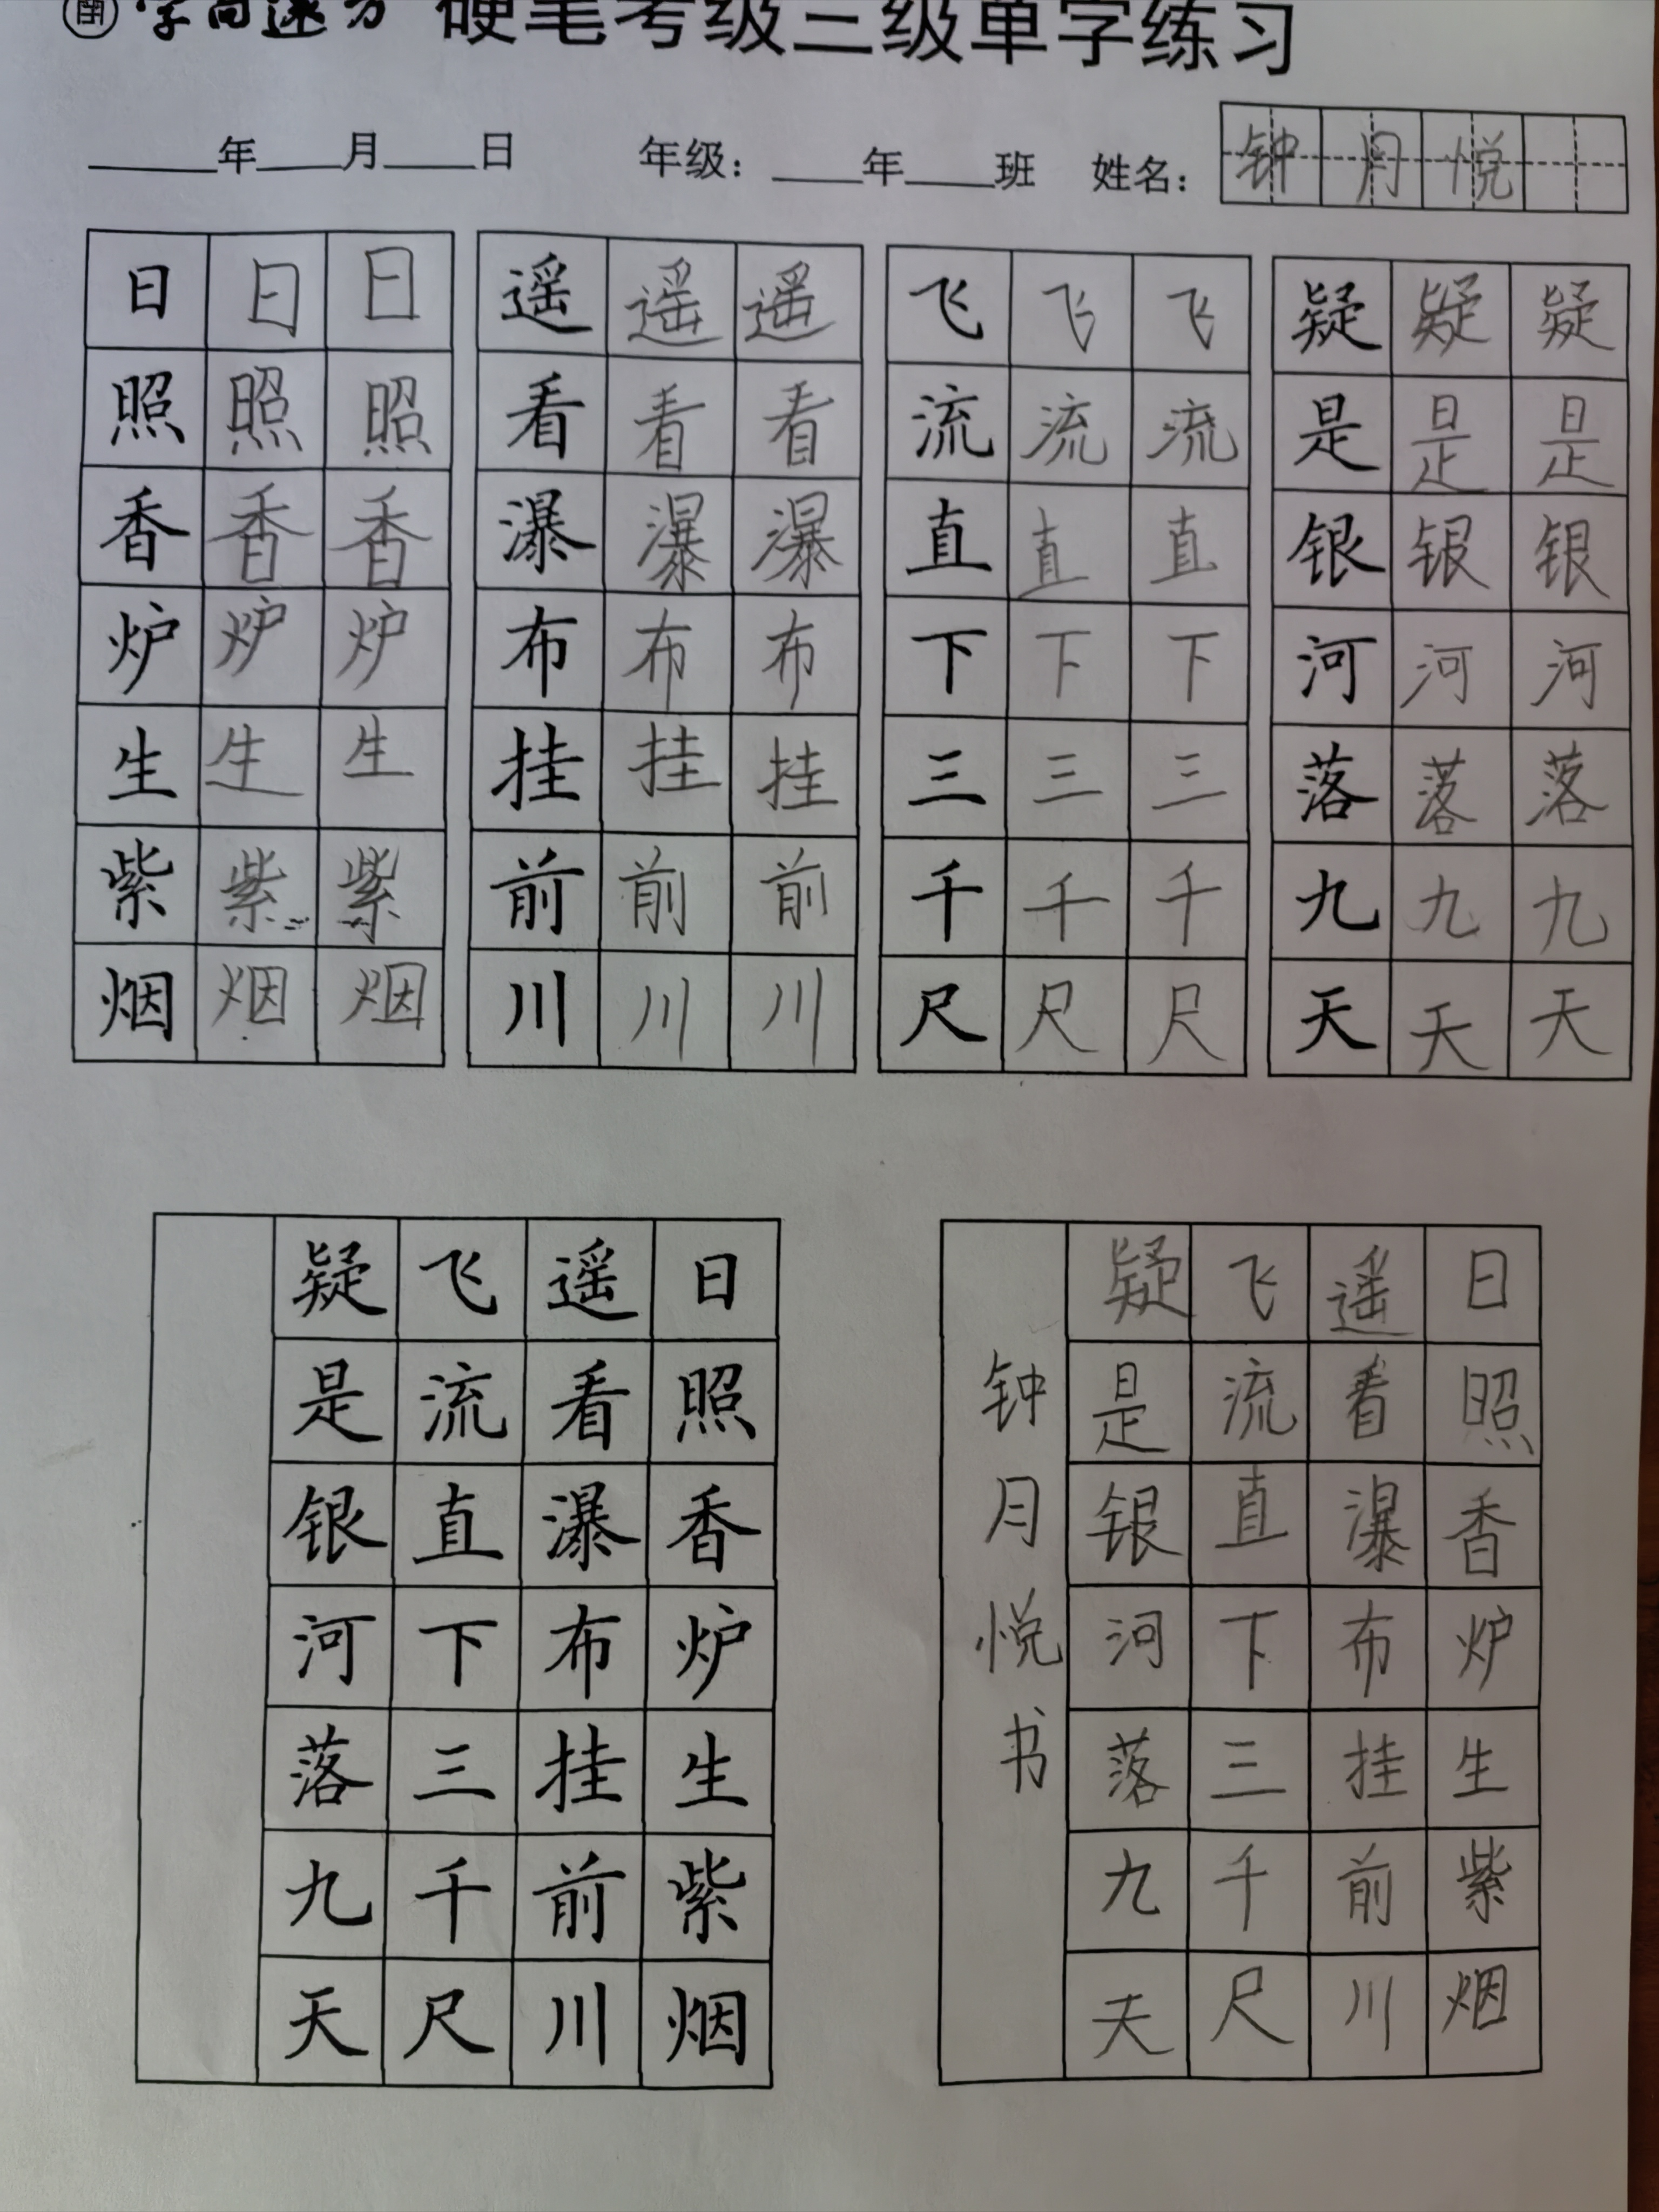 硬笔考级三级单字练习
年 月 日 年级： 年 班 姓名： 钟月悦
日日日 遥遥遥 飞飞飞 疑疑疑
照照照 看看看 流流流 是是是
香香香 瀑瀑瀑 直直直 银银银
炉炉炉 布布布 下下下 河河河
生生生 挂挂挂 三三三 落落落
紫紫紫 前前前 千千千 九九九
烟烟烟 川川川 尺尺尺 天天天
日照香炉生紫烟
遥看瀑布挂前川
飞流直下三千尺
疑是银河落九天
日照香炉生紫烟
遥看瀑布挂前川
飞流直下三千尺
疑是银河落九天
钟月悦书